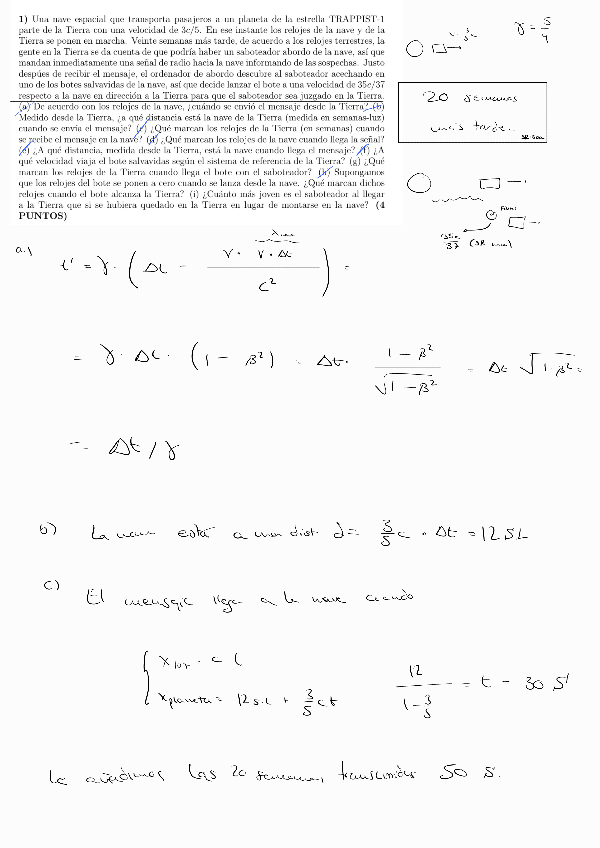 1) Una nave espacial que transporta pasajeros a un planeta de la estrella TRAPPIST-1
parte de la Tierra con una velocidad de 3c/5. En ese instante los relojes de la nave y de la
Tierra se ponen en marcha. Veinte semanas más tarde, de acuerdo a los relojes terrestres, la
gente en la Tierra se da cuenta de que podría haber un saboteador abordo de la nave, así que
mandan inmediatamente una señal de radio hacia la nave informando de las sospechas. Justo
después de recibir el mensaje, el ordenador de abordo descubre al saboteador acechando en
uno de los botes salvavidas de la nave, así que decide lanzar el bote a una velocidad de 35c/37
respecto a la nave en dirección a la Tierra para que el saboteador sea juzgado en la Tierra.
(a) De acuerdo con los relojes de la nave, ¿cuándo se envió el mensaje desde la Tierra? (b)
Medido desde la Tierra, ¿a qué distancia está la nave de la Tierra (medida en semanas-luz)
cuando se envía el mensaje? (c) ¿Qué marcan los relojes de la Tierra (en semanas) cuando
se recibe el mensaje en la nave? (d) ¿Qué marcan los relojes de la nave cuando llega la señal?
(e) ¿A qué distancia, medida desde la Tierra, está la nave cuando llega el mensaje? (f) ¿A
qué velocidad viaja el bote salvavidas según el sistema de referencia de la Tierra? (g) ¿Qué
marcan los relojes de la Tierra cuando llega el bote con el saboteador? (h) Supongamos
que los relojes del bote se ponen a cero cuando se lanza desde la nave. ¿Qué marcan dichos
relojes cuando el bote alcanza la Tierra? (i) ¿Cuánto más joven es el saboteador al llegar
a la Tierra que si se hubiera quedado en la Tierra en lugar de montarse en la nave? (4
PUNTOS)
γ = 5/4
20 semanas
más tarde..
35c/37 (SR nave)
a.)
t' = γ · (Δt - v · v · Δt / c²) =
= γ · Δt · (1 - β²) = Δt · 1 - β² / √1 - β² = Δt √1-β² =
= Δt / γ
b) La nave está a una dist. d = 3/5 c · Δt = 12 SL
c) El mensaje llega a la nave cuando
x luz = c t
x planeta = 12 s.l + 3/5 c t
12 / 1 - 3/5 = t = 30 S
Le añadimos las 20 semanas transcurridas 50 S.